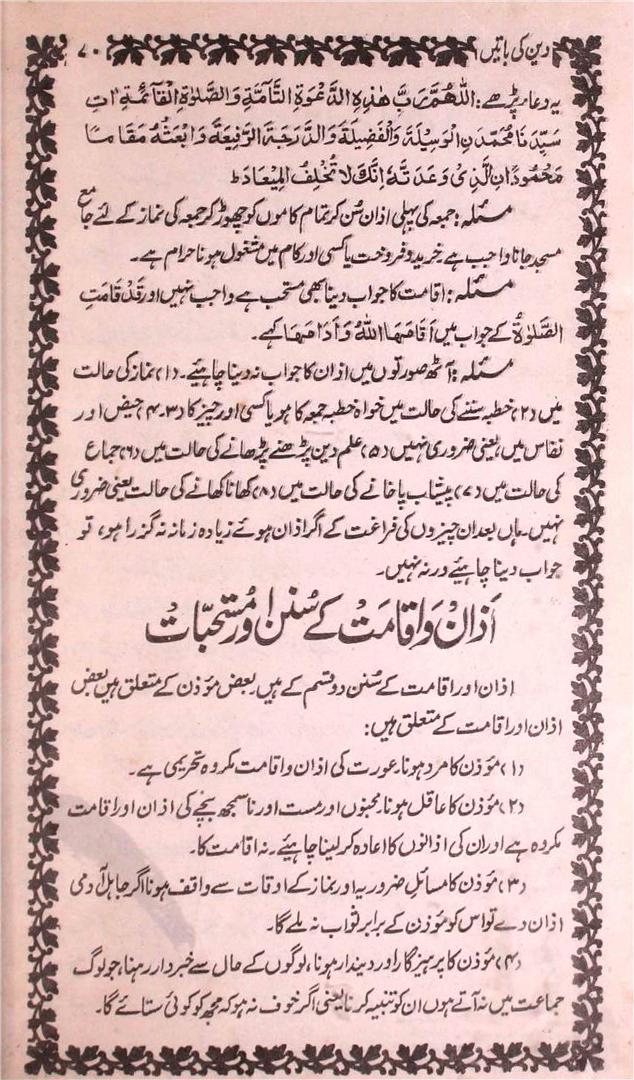 دین کی باتیں ۷۰
یہ دعا پڑھے: اَللّٰهُمَّ رَبَّ هٰذِهِ الدَّعْوَةِ التَّآمَّةِ وَالصَّلٰوةِ الْقَآئِمَةِ اٰتِ
سَيِّدَنَا مُحَمَّدَنِ الْوَسِيْلَةَ وَالْفَضِيْلَةَ وَالدَّرَجَةَ الرَّفِيْعَةَ وَابْعَثْهُ مَقَامًا
مَحْمُوْدَانِ الَّذِىْ وَعَدْتَّهٗ اِنَّكَ لَا تُخْلِفُ الْمِيْعَادَ ط
مسئلہ: جمعہ کی پہلی اذان سُن کر تمام کاموں کو چھوڑ کر جمعہ کی نماز کے لئے جامع
مسجد جانا واجب ہے۔ خرید و فروخت یا کسی اور کام میں مشغول ہونا حرام ہے۔
مسئلہ: اقامت کا جواب دینا بھی مستحب ہے واجب نہیں اور قَدْ قَامَتِ
الصَّلٰوةُ کے جواب میں اَقَامَهَا اللّٰهُ وَاَدَامَهَا کہے۔
مسئلہ: آٹھ صورتوں میں اذان کا جواب نہ دینا چاہیئے۔ (۱) نماز کی حالت
میں (۲) خطبہ سننے کی حالت میں خواہ خطبہ جمعہ کا ہو یا کسی اور چیز کا (۳۔۴) حیض اور
نفاس میں یعنی ضروری نہیں (۵) علم دین پڑھنے پڑھانے کی حالت میں (۶) جماع
کی حالت میں (۷) پیشاب پاخانے کی حالت میں (۸) کھانا کھانے کی حالت یعنی ضروری
نہیں۔ ہاں بعد ان چیزوں کی فراغت کے اگر اذان ہوئے زیادہ زمانہ نہ گزرا ہو، تو
جواب دینا چاہیئے ورنہ نہیں۔
اَذانْ وَاقامَتْ کے سُنن اور مُستحبّات
اذان اور اقامت کے سُنن دو قسم کے ہیں۔ بعض مؤذن کے متعلق ہیں بعض
اذان اور اقامت کے متعلق ہیں:
(۱) مؤذن کا مرد ہونا، عورت کی اذان و اقامت مکروہ تحریمی ہے۔
(۲) مؤذن کا عاقل ہونا۔ مجنوں اور مست اور ناسمجھ بچے کی اذان اور اقامت
مکروہ ہے اور ان کی اذانوں کا اعادہ کر لینا چاہیئے۔ نہ اقامت کا۔
(۳) مؤذن کا مسائلِ ضروریہ اور نماز کے اوقات سے واقف ہونا اگر جاہل آدمی
اذان دے تو اس کو مؤذن کے برابر ثواب نہ ملے گا۔
(۴) مؤذن کا پرہیزگار اور دیندار ہونا، لوگوں کے حال سے خبردار رہنا، جو لوگ
جماعت میں نہ آتے ہوں ان کو تنبیہ کرنا یعنی اگر خوف نہ ہو کہ مجھ کو کوئی ستائے گا۔